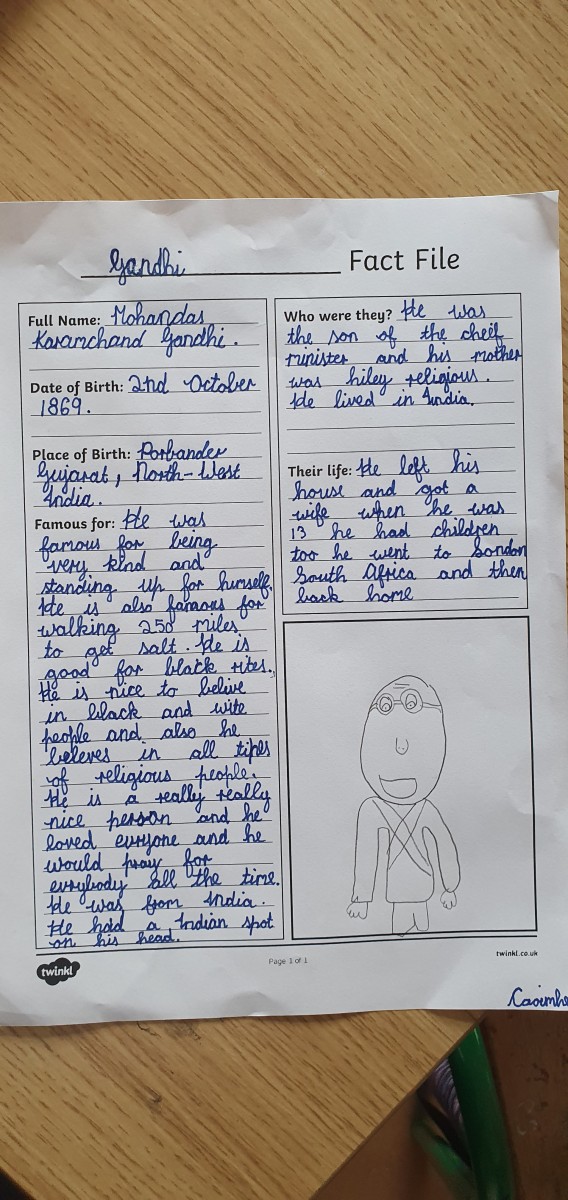 Gandhi Fact File
Full Name: Mohandas
Karamchand Gandhi.
Date of Birth: 2nd October
1869.
Place of Birth: Porbander
Gujarat, North-West
India.
Famous for: He was
famous for being
very kind and
standing up for himself.
He is also famous for
walking 250 miles
to get salt. He is
good for black rites.
He is nice to belive
in black and wite
people and also he
beleves in all tipes
of religious people.
He is a really really
nice person and he
loved evryone and he
would pray for
evrybody all the time.
He was from India.
He hold a Indian spot
on his head.
Who were they? He was
the son of the cheif
minister and his mother
was hiley religious.
He lived in India.
Their life: He left his
house and got a
wife when he was
13 he had children
too he went to London
South Africa and then
back home
twinkl
Page 1 of 1
twinkl.co.uk
Caoimhe